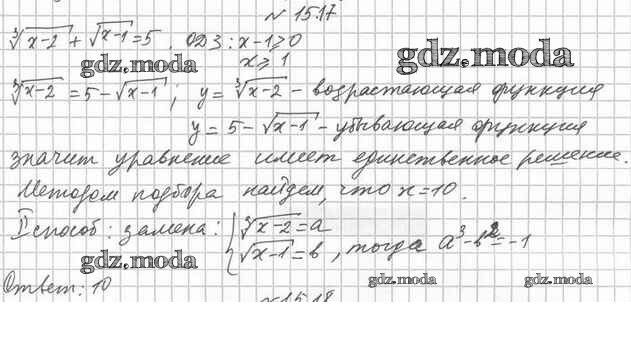 № 15.17
∛(x-2) + √(x-1) = 5, ОДЗ: x-1⩾0
x⩾1
gdz.moda
gdz.moda
∛(x-2) = 5-√(x-1); y = ∛(x-2) - возрастающая функция
y = 5-√(x-1) - убывающая функция
значит уравнение имеет единственное решение.
Методом подбора найдем, что x=10.
II способ: замена: { ∛(x-2) = a
√(x-1) = b , тогда a³-b²=-1
gdz.moda
gdz.moda
gdz.moda
Ответ: 10
№ 15.18